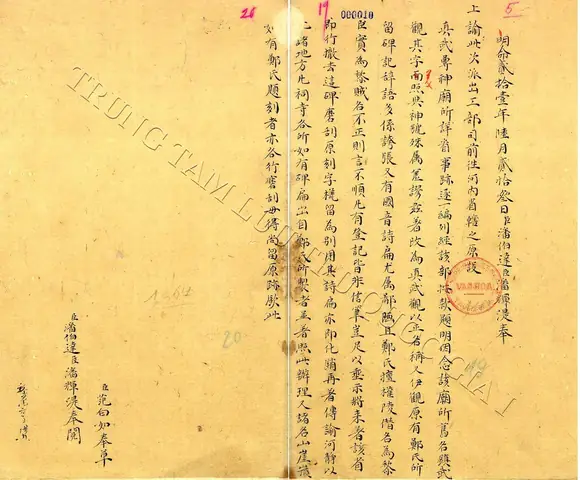 5
000010
19
26
明命貳拾壹年陸月貳拾叁日臣潘伯達臣潘輝湜奉
上諭此次派出工部司前往河內省轄之原設
真武尊神廟所詳省事跡逐一編列經該部題明因念該廟所舊名雖武
觀其字面照與神號殊屬荒謬玆著改為真武觀以正名稱又伊觀原有鄭氏所
留碑記辞語多係誇張又有國音詩扁尤屬鄙俚且鄭氏擅權陵僭名為黎
臣實為黎賊名不正則言不順凡有登記皆非信筆豈足以垂示將來者該省
即行撤去這碑磨刮原刻字樣留為別用其詩扁亦即化銷再者傳諭河靜以
北諸地方凡祠寺各所如有碑扁出自鄭氏所製者並著照此辦理又諸名山崖巖
如有鄭氏題刻者亦各行磨刮毋得尚留原跡欽此
臣范向如奉草
臣潘伯達臣潘輝湜奉閱
1964
20
19
TRUNG TAM LUU TRU QUOC GIA I